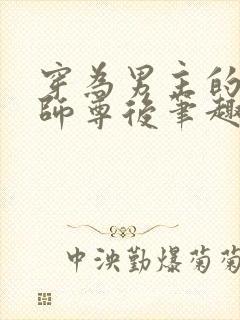 穿為男主的
師尊後筆趣
中泱勤爆菊菊